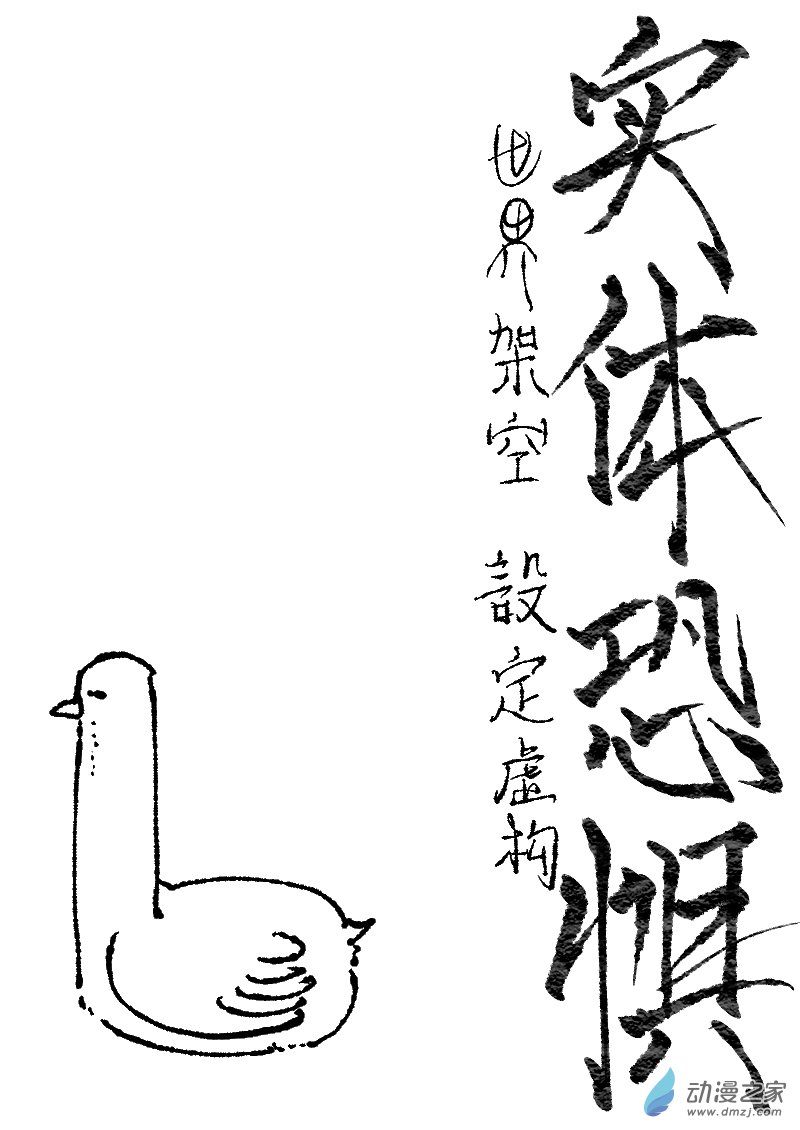 实体恐惧
世界架空 設定虚构
动漫之家
www.dmzj.com